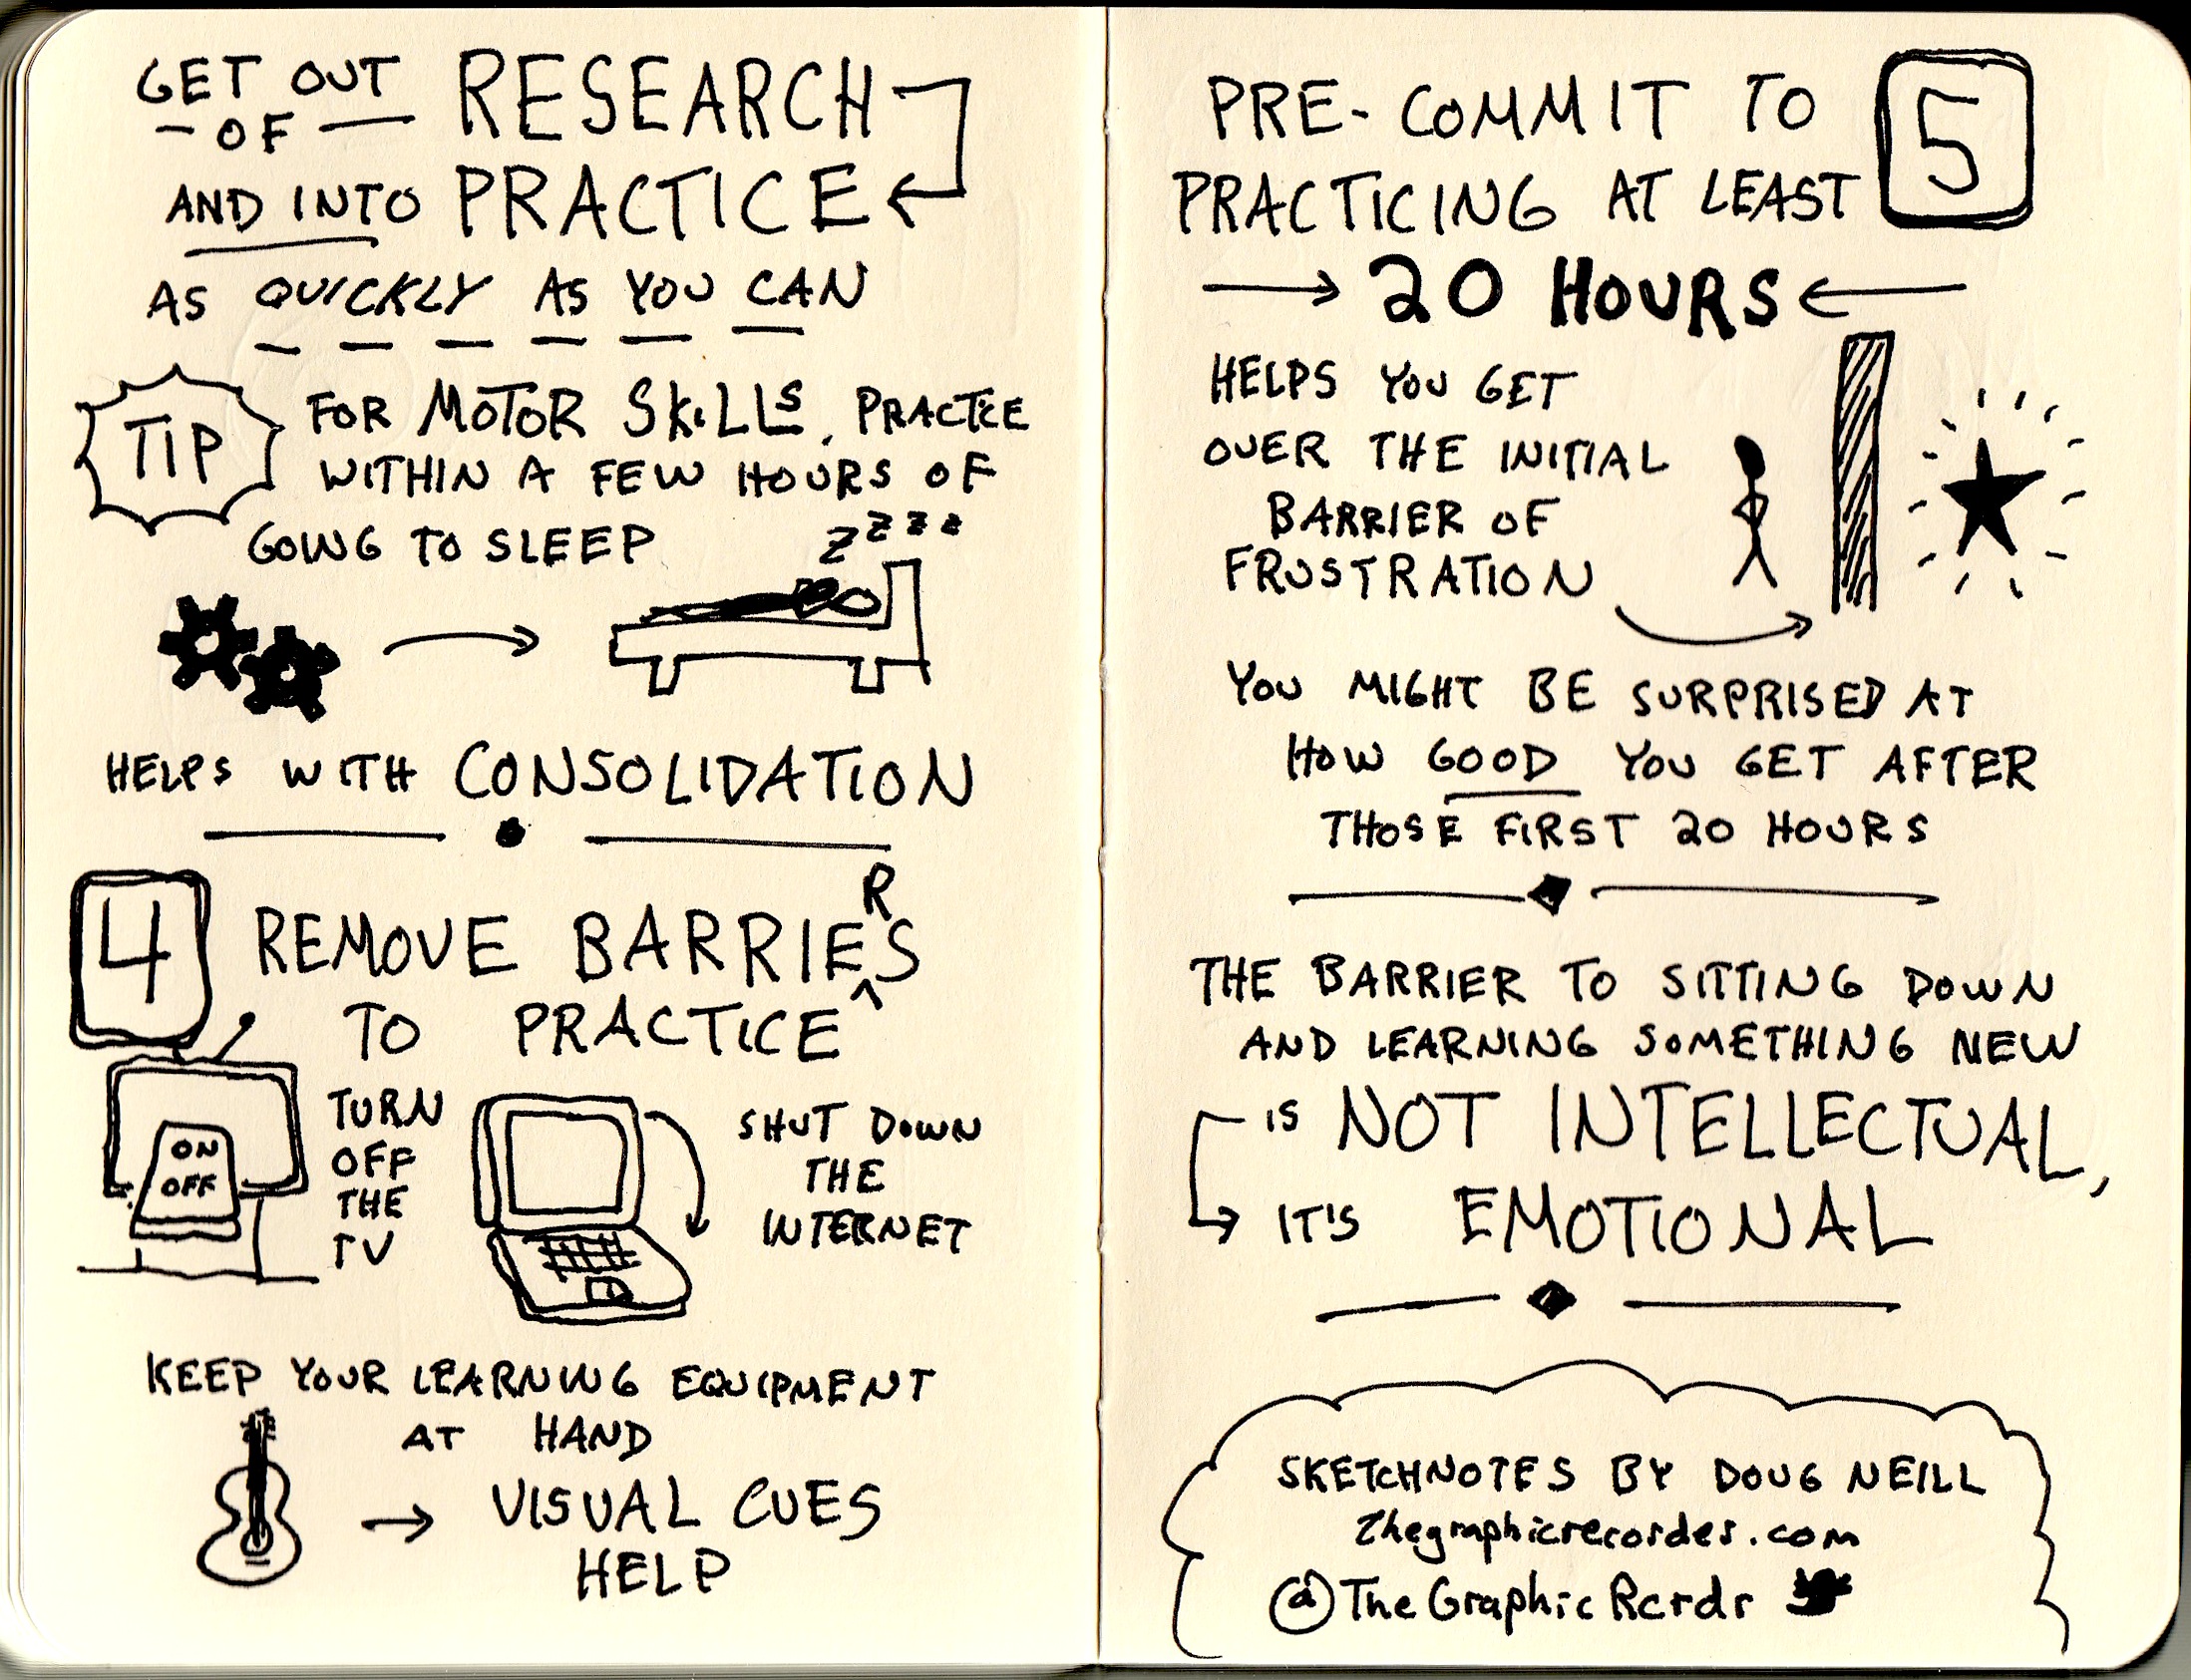 GET OUT
OF RESEARCH
AND INTO PRACTICE
AS QUICKLY AS YOU CAN
TIP
FOR MOTOR SKILLS, PRACTICE
WITHIN A FEW HOURS OF
GOING TO SLEEP
Z Z Z Z
HELPS WITH CONSOLIDATION
4
REMOVE BARRIERS
TO PRACTICE
ON
OFF
TURN
OFF
THE
TV
SHUT DOWN
THE
INTERNET
KEEP YOUR LEARNING EQUIPMENT
AT HAND
VISUAL CUES
HELP
PRE-COMMIT TO
PRACTICING AT LEAST
5
20 HOURS
HELPS YOU GET
OVER THE INITIAL
BARRIER OF
FRUSTRATION
YOU MIGHT BE SURPRISED AT
HOW GOOD YOU GET AFTER
THOSE FIRST 20 HOURS
THE BARRIER TO SITTING DOWN
AND LEARNING SOMETHING NEW
IS NOT INTELLECTUAL,
IT'S EMOTIONAL
SKETCHNOTES BY DOUG NEILL
thegraphicrecorder.com
@TheGraphicRcrdr